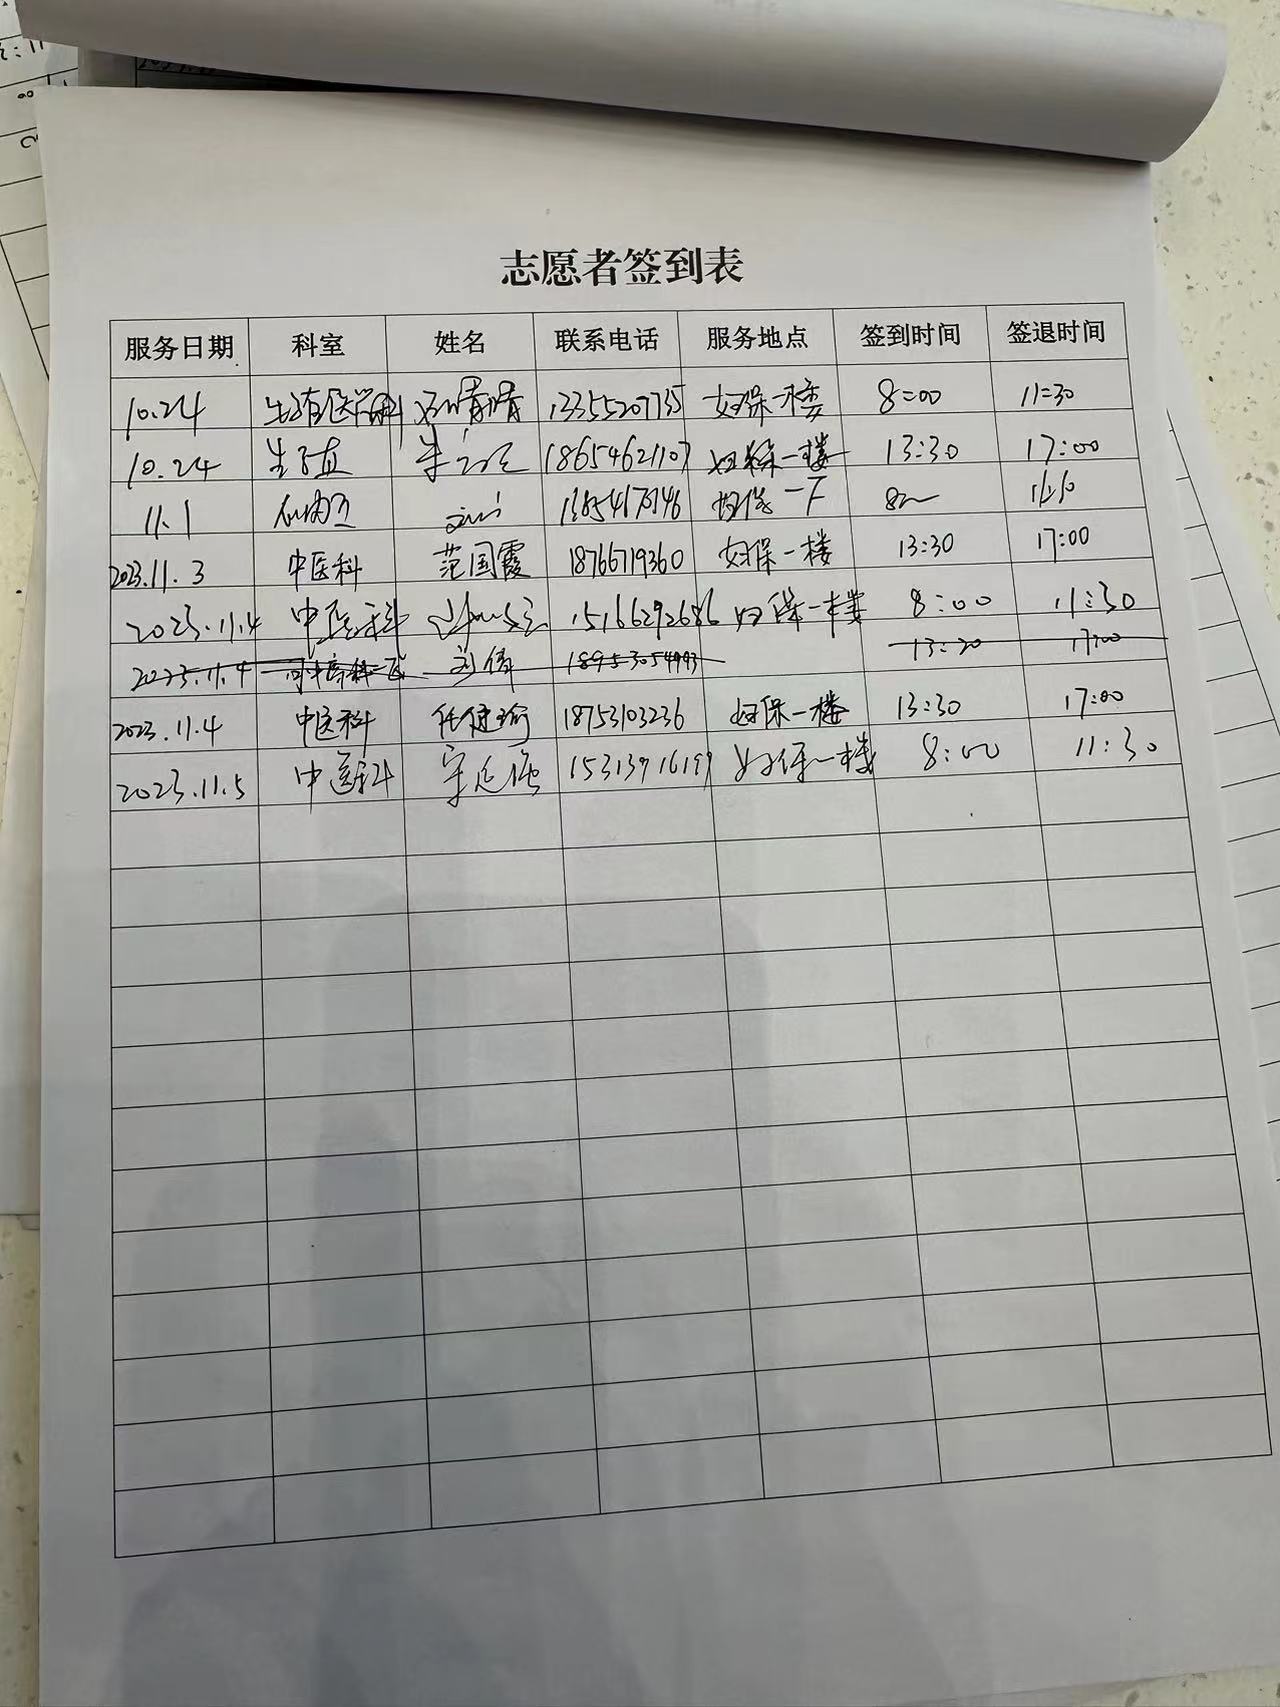 志愿者签到表
服务日期 科室 姓名 联系电话 服务地点 签到时间 签退时间
10.24 生殖医学科 13355207735 妇保一楼 8:00 11:30
10.24 生殖 18654621107 妇保一楼 13:30 17:00
11.1 妇保一下
2023.11.3 中医科 范国霞 18766719360 妇保一楼 13:30 17:00
2023.11.4 中医科 15166292686 妇保一楼 8:00 11:30
2023.11.4 刘倩 18953054993 17:00
2023.11.4 中医科 任健瑜 18753103236 妇保一楼 13:30 17:00
2023.11.5 中医科 妇保一楼 8:00 11:30